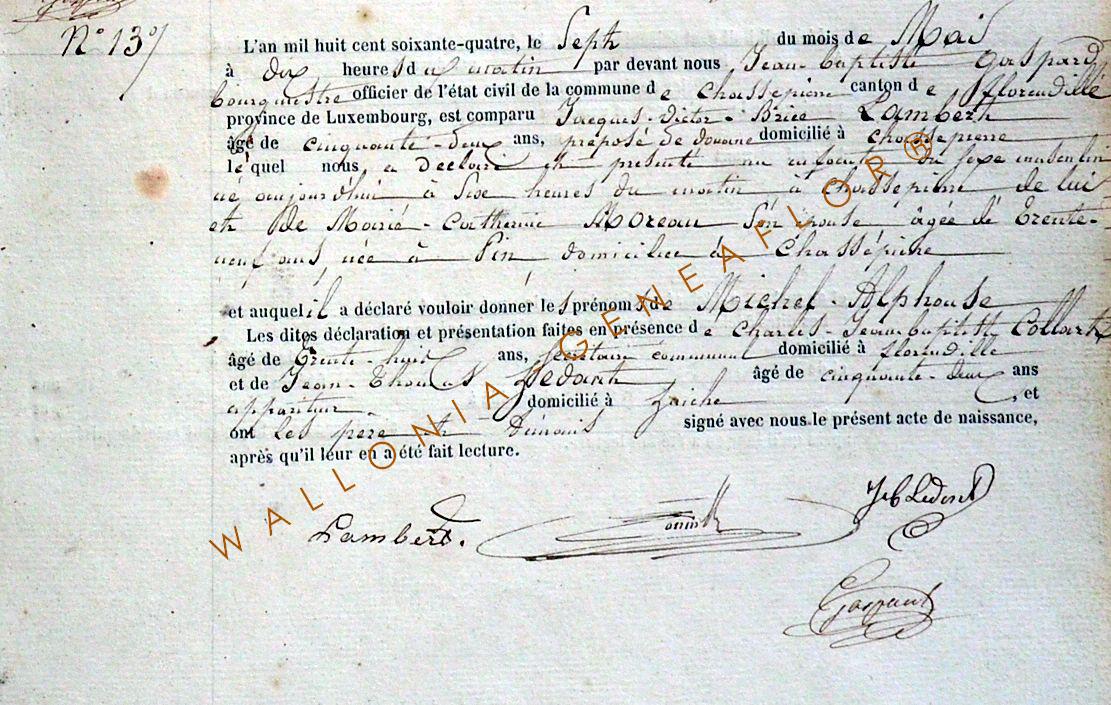 N° 13
L'an mil huit cent soixante-quatre, le Sept du mois de Mai
à dix heures du matin par devant nous Jean-baptiste Gaspard,
bourgmestre officier de l'état civil de la commune de Chassepierre canton de florenville
province de Luxembourg, est comparu Jacques-Victor-Brice Lambert
âgé de cinquante-deux ans, préposé de douane domicilié à chassepierre
lequel nous a déclaré et présenté un enfant du sexe masculin
né aujourdhui à Six heures du matin à chassepierre de lui
et De Marie-Catherine Moreau Son épouse âgée de trente-
neuf ans née à Pin domiciliée à Chassépierre
et auquel il a déclaré vouloir donner les prénoms de Michel-Alphonse
Les dites déclaration et présentation faites en présence de Charles-Jean-baptiste Collart
âgé de trente-huit ans, secrétaire communal domicilié à florenville
et de Jean-Thomas Ledent âgé de cinquante-deux ans
appariteur domicilié à Laiche, et
ont les père et témoins signé avec nous le présent acte de naissance,
après qu'il leur en a été fait lecture.
Lambert.
Ledent
Gaspard
WALLONIA GENEAFLOR®